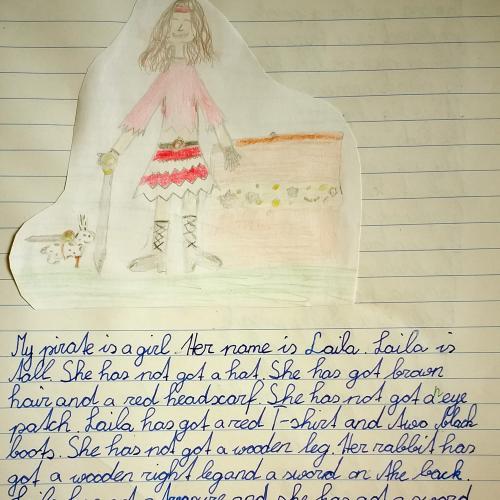 My pirate is a girl. Her name is Laila. Laila is
tall. She has not got a hat. She has got brown
hair and a red headscarf. She has not got a eye
patch. Laila has got a red T-shirt and two black
boots. She has not got a wooden leg. Her rabbit has
got a wooden right leg and a sword on the back.
Laila has got a treasure and she has got a sword